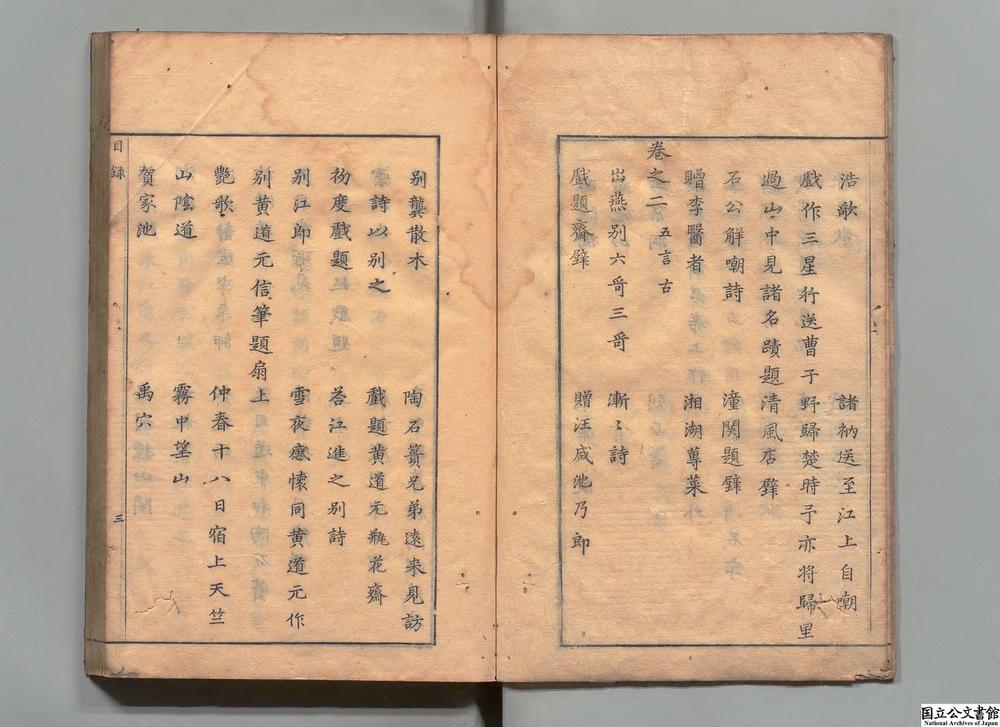 浩歌 諸衲送至江上自嘲
戲作三星行送曹子野歸楚時予亦將歸里
過山中見諸名蹟題清風店壁
石公解嘲詩 潼関題壁
贈李醫者 湘湖蓴菜
卷之二 五言古
出燕別六哥三哥 漸〻詩
戲題齋壁 贈汪咸池乃郎
別龔散木 陶石簣兄弟遠来見訪
詩以別之 戲題黄道元瓶花齋
初度戲題 荅江進之別詩
別江郎 雪夜感懷同黄道元作
別黄道元信筆題扇上
艷歌 仲春十八日宿上天竺
山陰道 霧中望山
賀家池 禹穴
目録
三
国立公文書館
National Archives of Japan